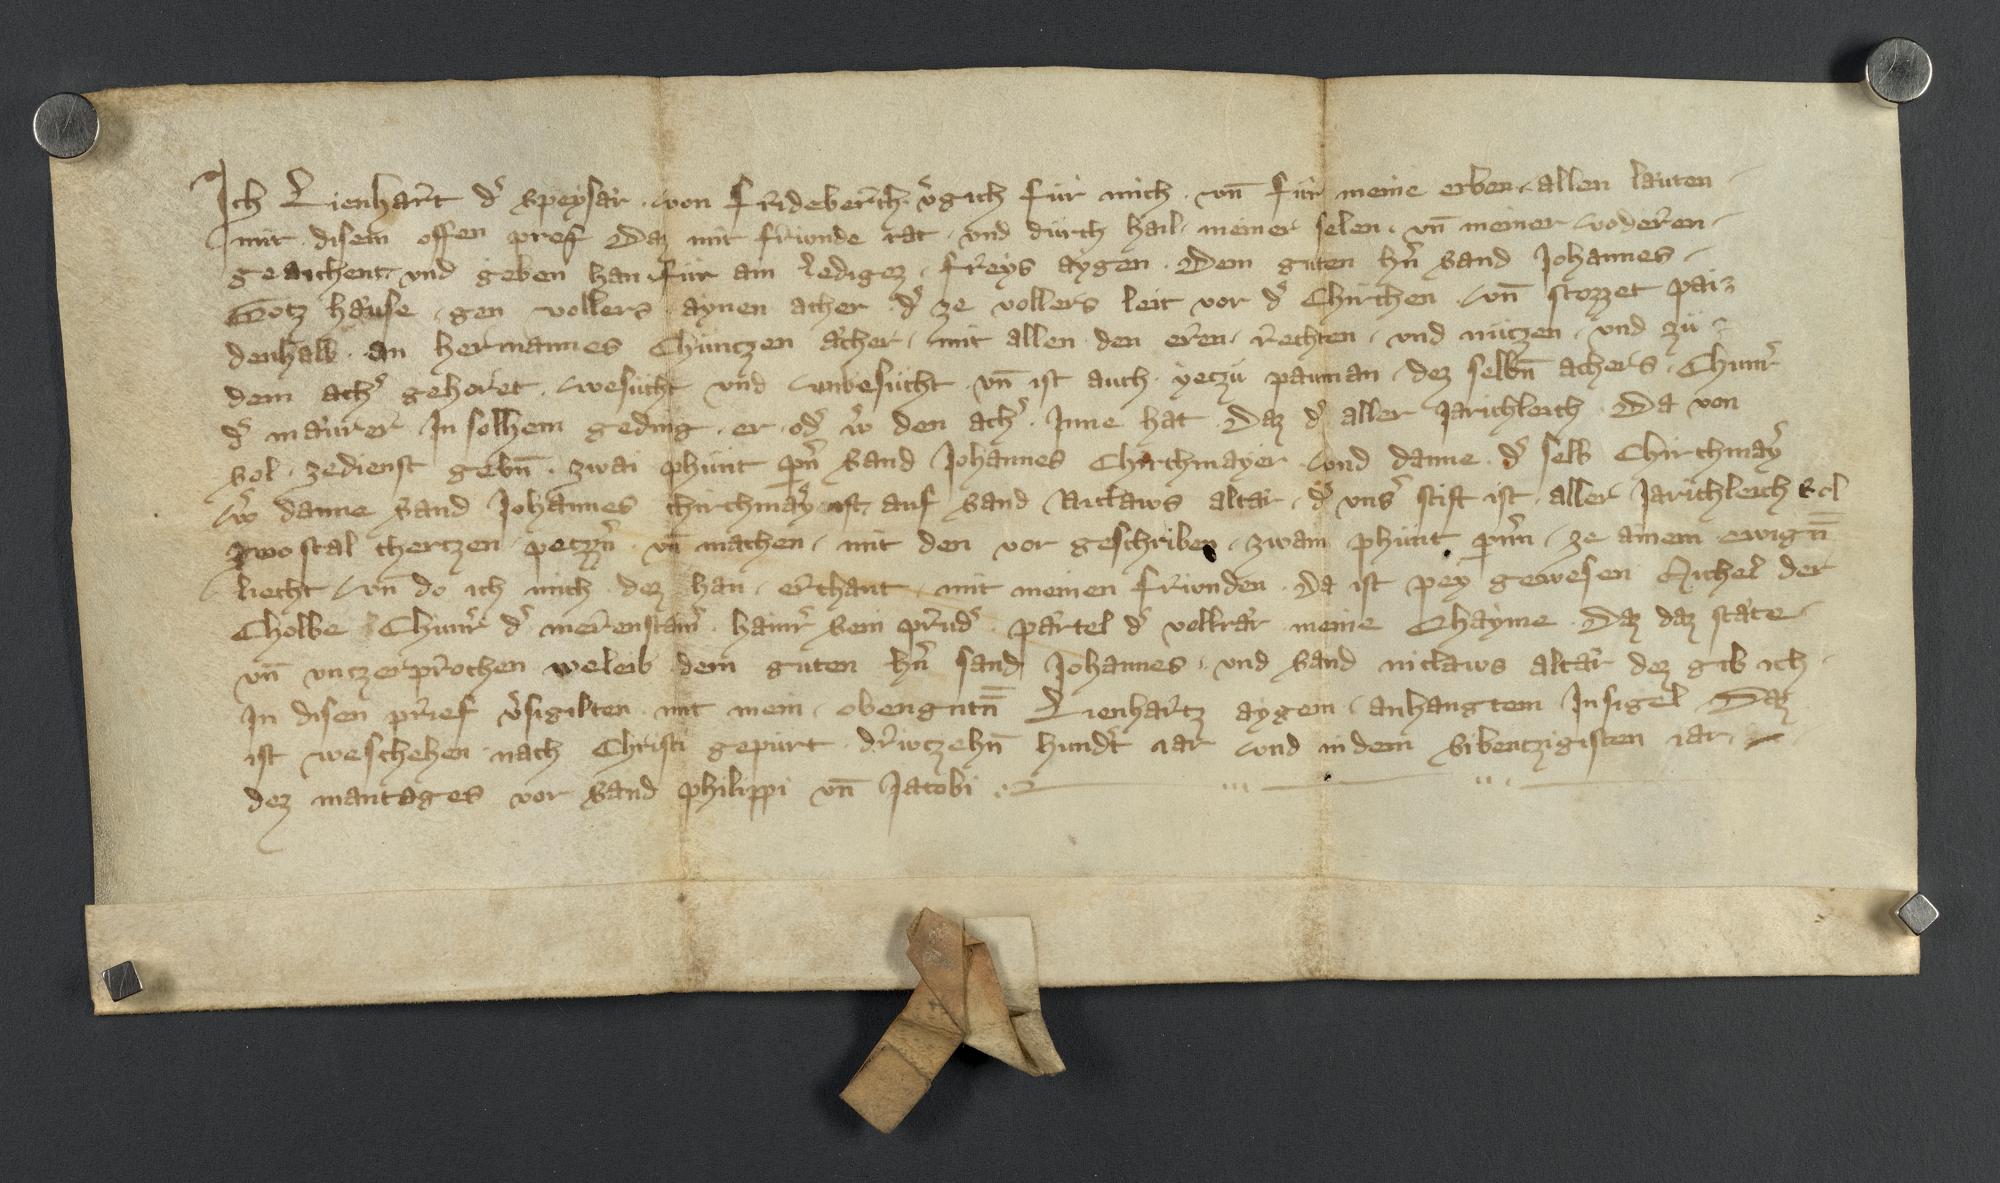 Ich Lienhart d᷑ Speysär von Frideberch v᷑gich für mich vn̄ für meine erben allen läuten
mit disem offen pref Daz mit friunde rat vnd dürch hail meiner selen vn̄ meiner voderen
geaichent vnd geben han für ain ledigez freys aygen Dem guten hn̄ Sand Johannes
Gotz häuse gen vollers aynen acher d᷑ ze vollers leit vor d᷑ Chirchen vn̄ stozzet pai
denhalb an hermannes Chüntzen ächer mit allen den eren rechten vnd nützen vnd zü
dem ach᷑ gehöret wesücht vnd vnbesücht vn̄ ist auch yeczü pauman dez selbn̄ achers Chunr᷑
d᷑ mäurer In solhem geding er od᷑ w᷑ den ach᷑ Inne hat Daz d᷑ aller Jarichleich Da von
Sol zedienst gebn̄ zwai phünt pn̄ Sand Johannes Chirchmayer vnd danne d᷑ selb Chirchmay᷑
w᷑ danne Sand Johannes chirchmay᷑ ist auf Sand Niclaws altär d᷑ vns᷑ stift ist aller Jarichleich Sol
zwo stal chertzen petzn̄ vn̄ machen mit den vor geschriben zwain phünt pn̄n ze ainem ewign̄
liecht vn̄ do ich mich dez han erchant mit meinen friunden Da ist pey gewesen Michel der
Cholbe Chunr᷑ d᷑ merenstain᷑ hainr᷑ Sein prud᷑ pärtel d᷑ vollrär meine Chäyme Daz daz stäte
vn̄ vnczerprochen weleib dem guten hn̄ sand Johannes vnd Sand niclaws altär dez gib ich
In disen prief v᷑sigilten mit mein obengntn̄ Lienhartz aygem anhangtem Insigel Daz
ist weschehen nach Christi gepürt driwczehn̄ hundt᷑ iar vnd in dem Sibentzigisten iar
dez mantages vor Sand philippi vn̄ Jacobi